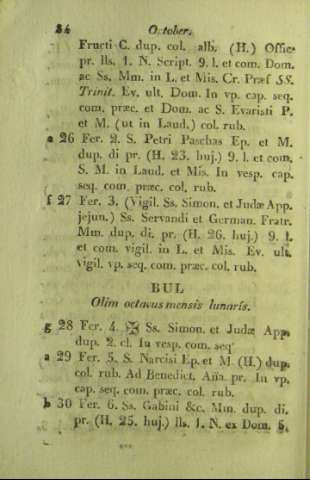 84 October.
Fructi C. dup. col. alb. (H.) Office
pr. lls. 1. N. Script. 9. l. et com. Dom.
ac Ss. Mm. in L. et Mis. Cr. Præf SS.
Trinit. Ev. ult. Dom. In vp. cap. seq.
com. præc. et Dom. ac S. Evaristi P.
et M. (ut in Laud.) col. rub.
e 26 Fer. 2. S. Petri Paschas Ep. et M.
dup. di pr. (H. 23. huj.) 9. l. et com.
S. M. in Laud. et Mis. In vesp. cap.
seq. com. præc. col. rub.
f 27 Fer. 3. (Vigil. Ss. Simon. et Judæ App.
jejun.) Ss. Servandi et German. Fratr.
Mm. dup. di. pr. (H. 26. huj.) 9. l.
et com. vigil. in L. et Mis. Ev. ult.
vigil. vp. seq. com. præc. col. rub.
BUL
Olim octavus mensis lunaris.
g 28 Fer. 4. ✠ Ss. Simon. et Judæ App.
dup. 2. cl. In vesp. com. seq
a 29 Fer. 5. S. Narcisi Ep. et M. (H.) dup.
col. rub. Ad Benedict. Aña. pr. In vp.
cap. seq. com. præc. col. rub.
b 30 Fer. 6. Ss. Gabini &c. Mm. dup. di.
pr. (H. 25. huj.) lls. 1. N. ex Dom. 5.